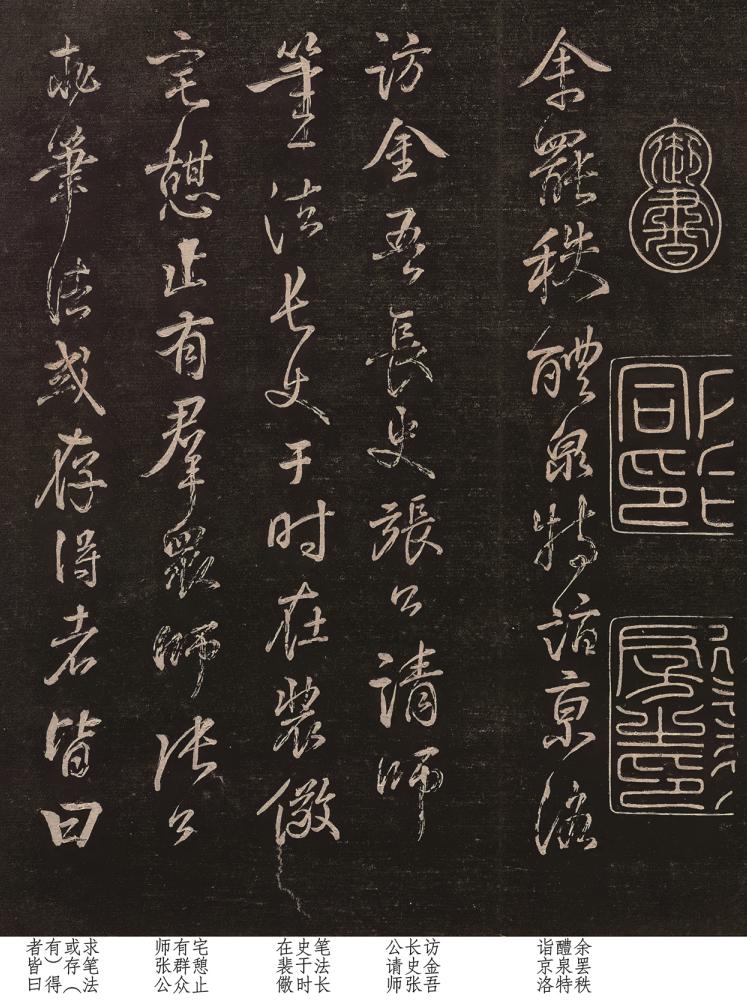 御書
余罷秩醴泉特詣京洛
訪金吾長史張公請師
筆法長史于时在裴儆
宅憩止有羣眾師張公
求筆法或存得者皆曰
余罢秩
醴泉特
诣京洛
访金吾
长史张
公请师
笔法长
史于时
在裴儆
宅憩止
有群众
师张公
求笔法
或存（
有）得
者皆曰